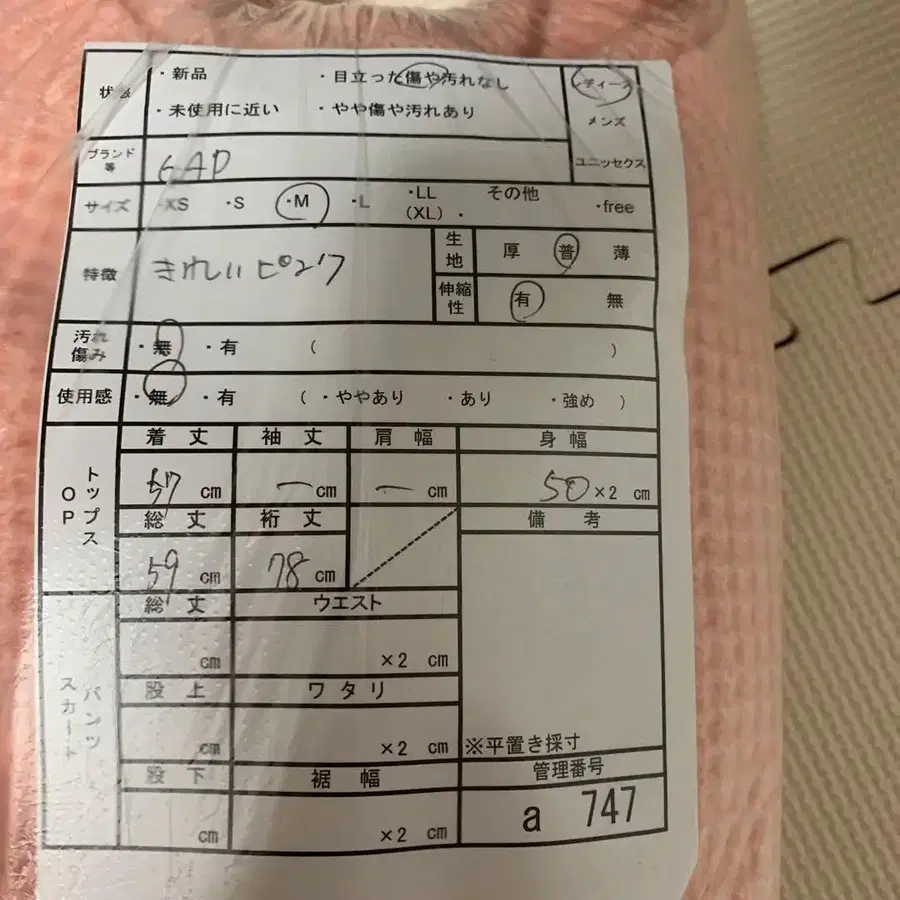 状態 ・新品 ・目立った傷や汚れなし レディース
・未使用に近い ・やや傷や汚れあり メンズ
ユニセックス
ブランド等 GAP
サイズ ・XS ・S ・M ・L ・LL(XL) ・その他 ・free
特徴 きれいピンク 生地 厚 普 薄
伸縮性 有 無
汚れ傷み ・無 ・有 ( )
使用感 ・無 ・有 ( ・ややあり ・あり ・強め )
トップス OP 着丈 袖丈 肩幅 身幅
57 cm ー cm ー cm 50×2 cm
総丈 裄丈 備考
59 cm 78 cm
パンツ スカート 総丈 ウエスト
cm ×2 cm
股上 ワタリ
cm ×2 cm ※平置き採寸
股下 裾幅 管理番号
cm ×2 cm a 747